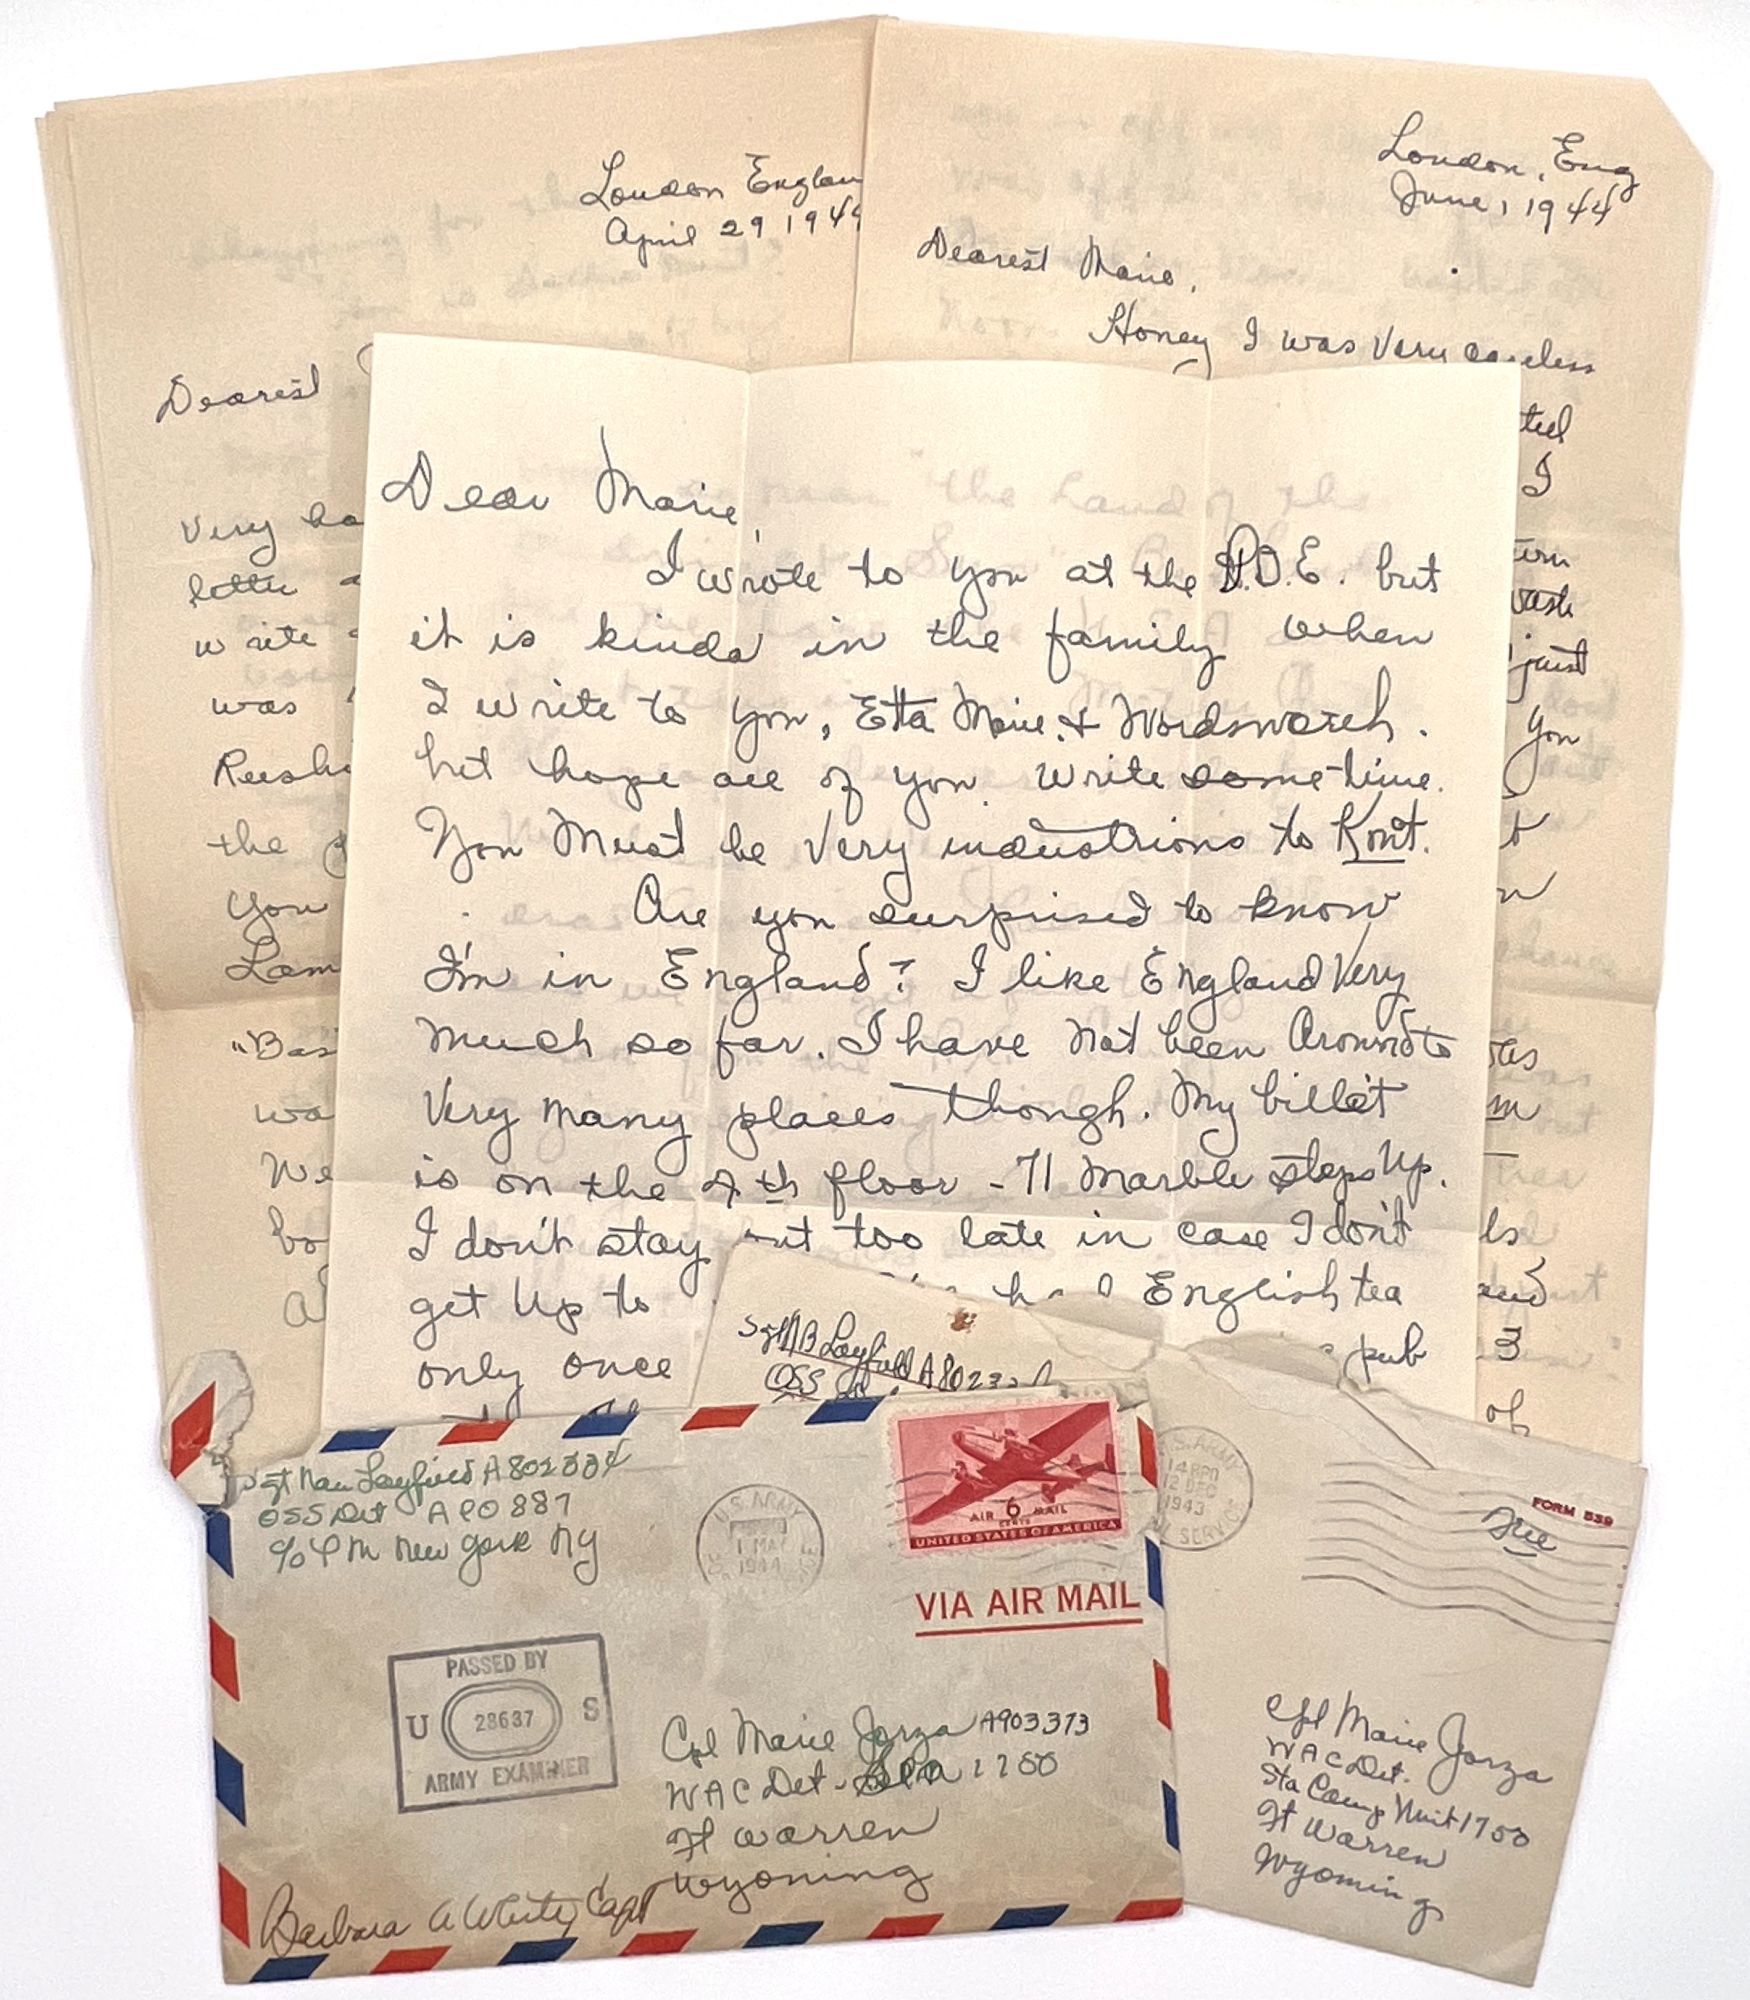 London Englan
April 29 194
Dearest
Very ha
letter a
write
was
Reeshi
the
You
Lam
"Bas
wa
We
bo
London, Eng
June, 1944
Dearest Marie,
Honey I was Very careless
I
just
you
3
of
Dear Marie,
I wrote to you at the P.O.E. but
it is kinda in the family when
I write to you, Etta Marie & Wordsworth.
Let hope all of you write sometime.
You Must be Very industrious to Rout.
Are you surprised to know
I'm in England? I like England Very
much so far. I have Not been Around to
Very Many places though. My billet
is on the 4th floor - 71 Marble steps Up.
I don't stay out too late in case I don't
get Up to English tea
only once pub
Sgt N B Layfield A80233
OSS
Sgt Nan Layfield A802334
OSS Det APO 887
c/o P M New York NY
U.S. ARMY
1 MAY
1944
AIR 6 MAIL
CENTS
UNITED STATES OF AMERICA
VIA AIR MAIL
PASSED BY
U 28637 S
ARMY EXAMINER
Cpl Marie Jorza A903373
WAC Det - 1750
Ft Warren
Wyoming
Barbara A White, Capt
U.S. ARMY
12 DEC
1943
SERVICE
FORM 539
Free
Cpl Marie Jorza
WAC Det.
Sta Comp Unit 1750
Ft Warren
Wyoming